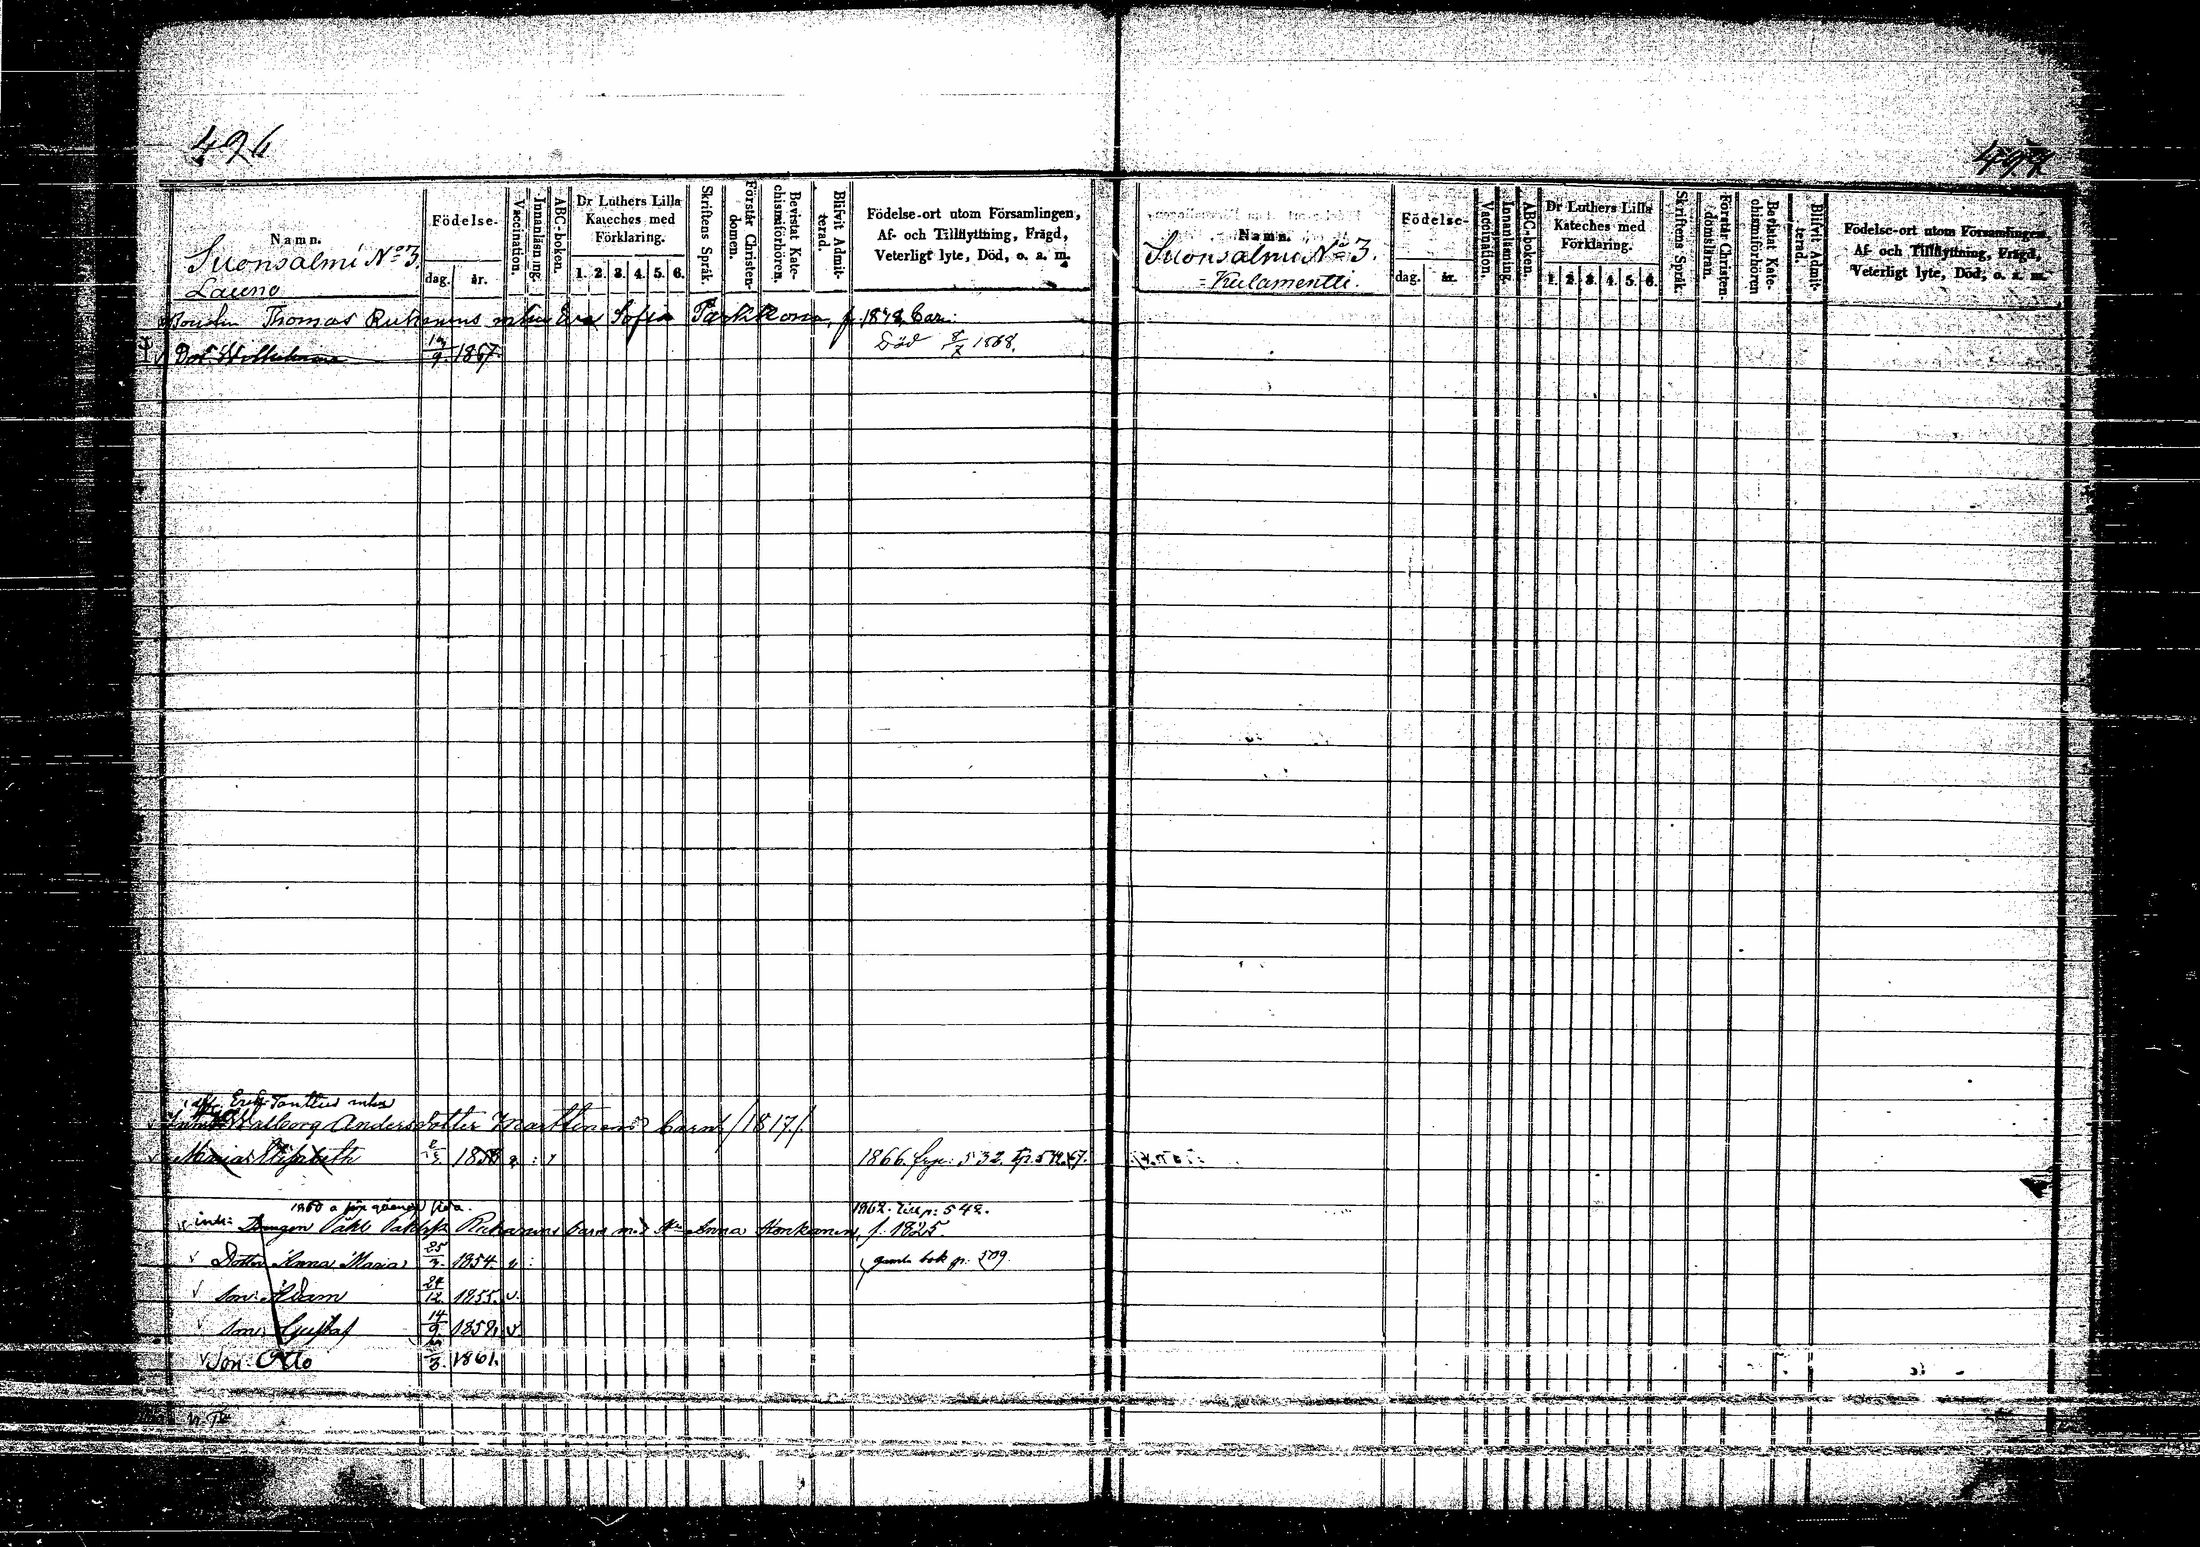 496
Namn.
Suonsalmi No 3.
Launo
Födelse-
dag.
år.
Vaccination.
Innanläsning.
ABC-boken.
Dr Luthers Lilla
Kateches med
Förklaring.
1. 2. 3. 4. 5. 6.
Skriftens Språk.
Förstår Christen-
domen.
Bevistat Kate-
chismiförhören.
Blifvit Admit-
terad.
Födelse-ort utom Församlingen,
Af- och Tillflyttning, Frägd,
Veterligt lyte, Död, o. a. m.
Thomas enka Eva Sofia Parkkona, f 1828, barn:
Dot. Wilhelmina 9 1867 Död 8/7 1868.
Erik
Walborg Andersdotter Marttinens barn /1817/.
Maria Elisabeth 1858 1866. p. 532.
1860 a föregående sida. 1862. Till p: 542.
inh: Drengen Påhl barn med Anna Honkanen, f. 1825.
Dotter Anna Maria 25/3 1854 v gamla bok p. 509.
Son: Adam 24/12 1855. v.
Son: Gustaf 14/9 1858. v
Son: Otto 3. 1861.
497
Namn.
Suonsalmi No 3.
Kulamentti.
Födelse-
dag.
år.
Vaccination.
Innanläsning.
ABC-boken.
Dr Luthers Lilla
Kateches med
Förklaring.
1. 2. 3. 4. 5. 6.
Skriftens Språk.
Förstår Christen-
domsläran.
Bevistat Kate-
chismiförhören
Blifvit Admit-
terad.
Födelse-ort utom Församlingen,
Af- och Tillflyttning, Frägd,
Veterligt lyte, Död, o. a. m.